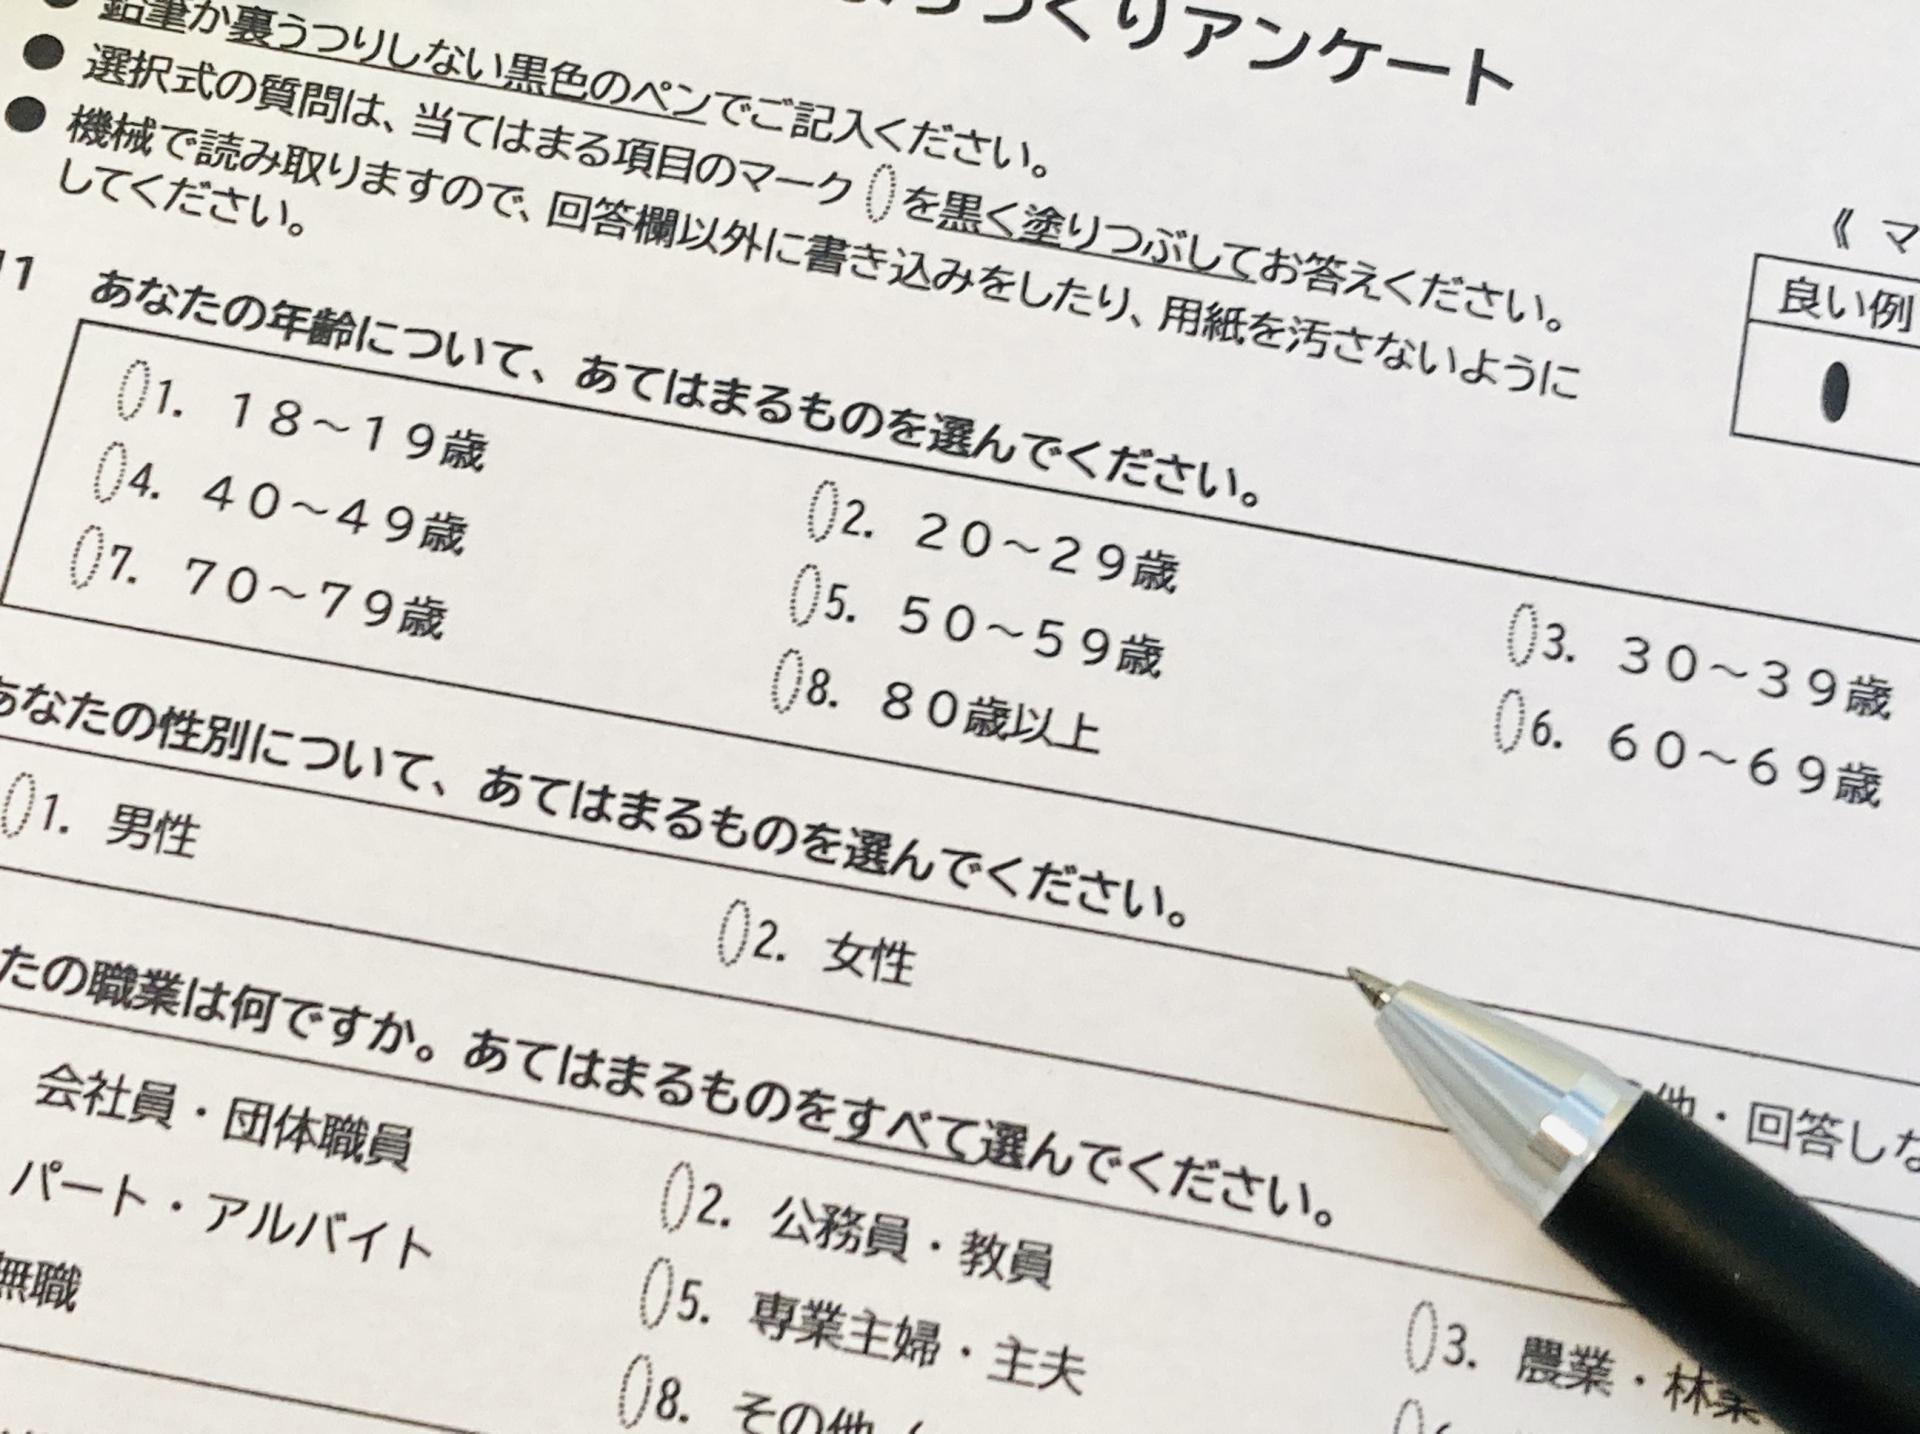 づくりアンケート
鉛筆か裏うつりしない黒色のペンでご記入ください。
選択式の質問は、当てはまる項目のマーク を黒く塗りつぶしてお答えください。
機械で読み取りますので、回答欄以外に書き込みをしたり、用紙を汚さないように
してください。
《 マ
良い例
1 あなたの年齢について、あてはまるものを選んでください。
1. 18～19歳 2. 20～29歳 3. 30～39歳
4. 40～49歳 5. 50～59歳 6. 60～69歳
7. 70～79歳 8. 80歳以上
あなたの性別について、あてはまるものを選んでください。
1. 男性 2. 女性 他・回答しな
たの職業は何ですか。あてはまるものをすべて選んでください。
会社員・団体職員 2. 公務員・教員 3. 農業・林業
パート・アルバイト 5. 専業主婦・主夫
無職 8. その他（